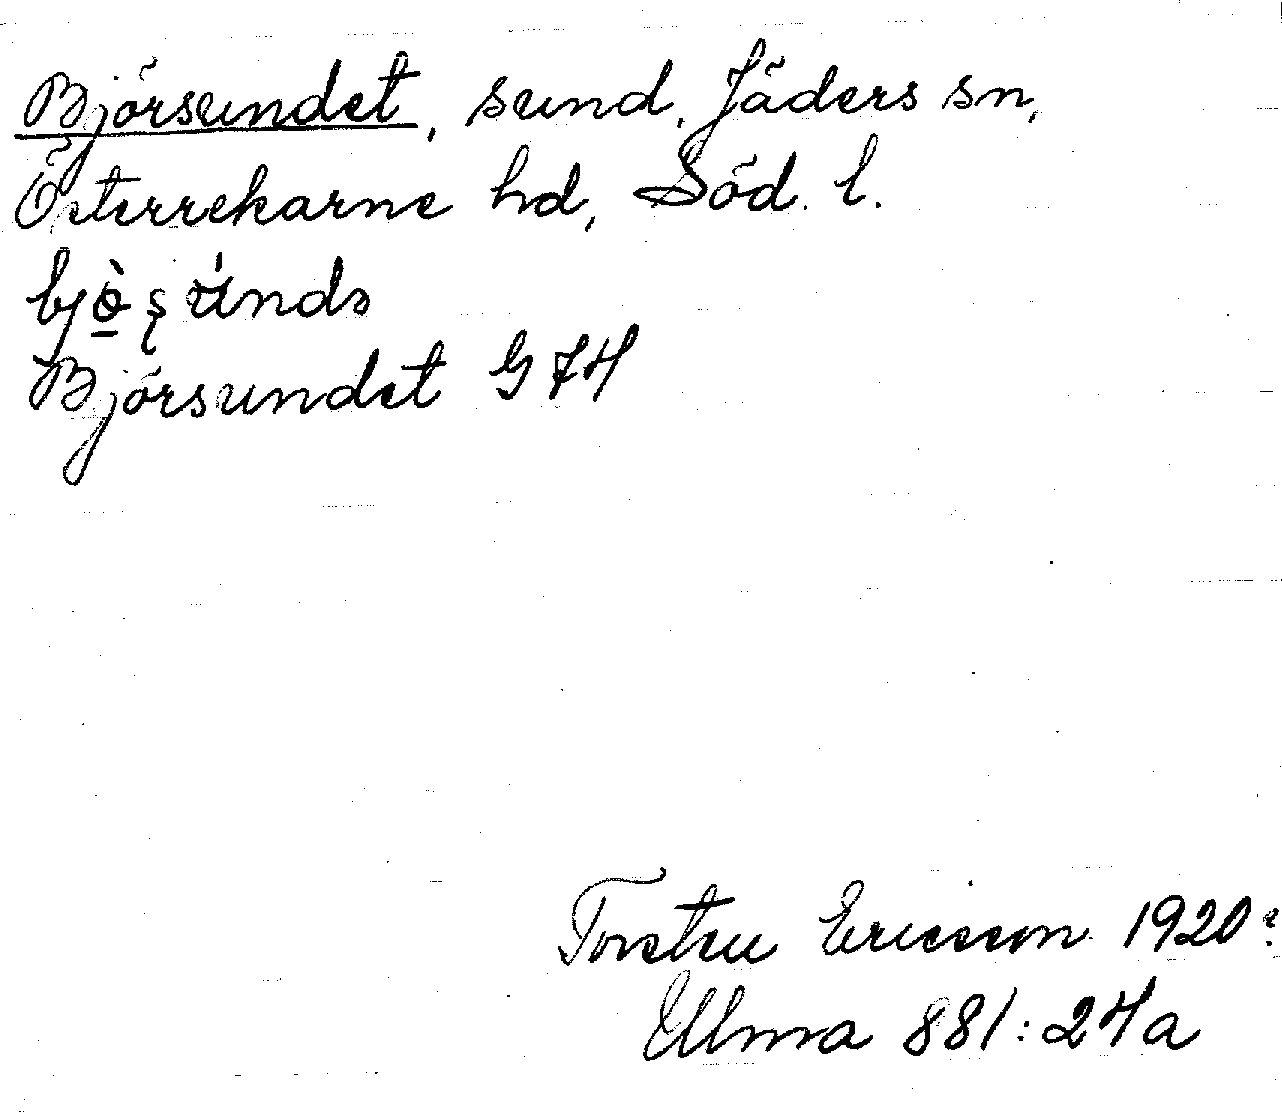 Björsundet, sund, Jäders sn,
Österrekarne hd, Söd. l.
Björsundet G 74
Torsten Ericsson 1920
Ulma 881:24a